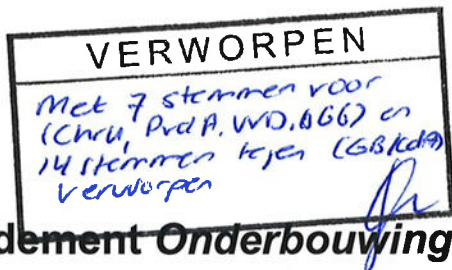 VERWORPEN
Met 7 stemmen voor
(Chru, PvdA, VVD, 666) en
14 stemmen tegen (GB/CdA)
verworpen
dement Onderbouwing